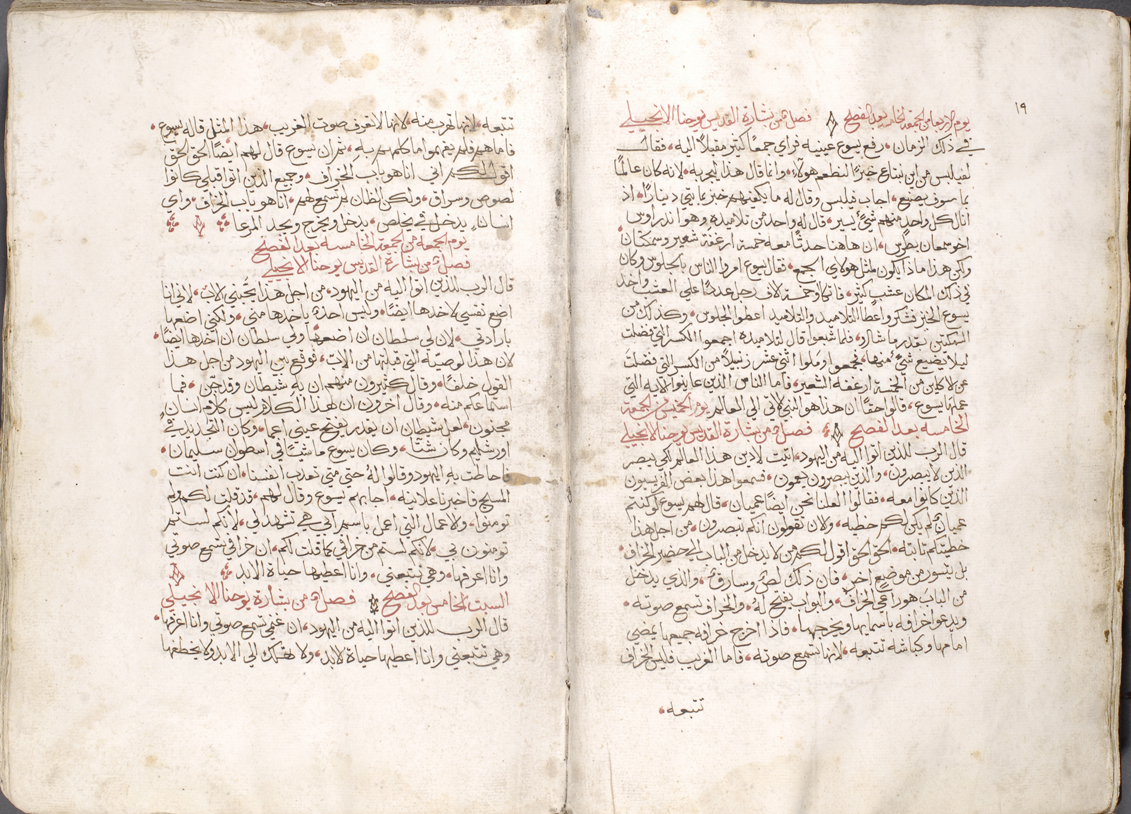 ١٩
يوم الاربعا من الجمعة الخامسة بعد الفصح فصل من بشارة القديس يوحنا الانجيلي
في ذلك الزمان رفع يسوع عينيه فراي جمعاً كثير مقبلاً اليه فقال
لفيلبس من اين نبتاع خبزاً لنطعم هولاء وانما قال هذا يجربه لانه كان عالماً
بما سوف يصنع اجاب فيلبس وقال له ما يكفيهم خبز مايتي ديناراً اذ
انال كل واحد منهم شي يسير قال له واحد من تلاميذه وهو اندراوس
اخو سمعان بطرس ان هاهنا حدثاً معه خمسة ارغفة شعير وسمكتان
ولكن هذا ماذا يكون لمثل هولاي الجمع فقال يسوع امروا الناس بالجلوس وكان
في ذلك المكان عشب كثير فاتكا خمسة الاف رجل عدداً على العشب واخذ
يسوع الخبز فشكر واعطا التلاميذ والتلاميذ اعطوا الجلوس وكذلك من
السمكتين بقدر ما شاوا فلما شبعوا قال لتلاميذه اجمعوا الكسر التي فضلت
ليلا يضيع شي منها فجمعوا وملوا اثني عشر زنبيلاً من الكسر التي فضلت
عن الاكلين من الخمسة ارغفة الشعير فاما الناس الذين عاينوا الايه التي
عملها يسوع قالوا حقاً ان هذا هو النبي الاتي الى العالم يوم الخميس من الجمعة
الخامسه بعد الفصح فصل من بشارة القديس يوحنا الانجيلي
قال الرب للذين اتوا اليه من اليهود اتيت لادين هذا العالم لكي يبصر
الذين لا يبصرون والذين يبصرون يعمون فسمعوا هذا بعض الفريسيون
الذين كانوا معه فقالوا العلنا نحن ايضاً عميان قال لهم يسوع لو كنتم
عميان لم يكن لكم خطيه ولان تقولون انكم تبصرون من اجل هذا
خطيتكم ثابته الحق الحق اقول لكم من لا يدخل من الباب الى حضير الخراف
بل يتسور من موضع اخر فان ذلك لص وسارق والذي يدخل
من الباب هو راعي الخراف والبواب يفتح له والخراف تسمع صوته
ويدعو اخرافه باسمايها ويخرجها فاذا اخرج خرافه جميعها يمضي
امامها وكباشه تتبعه لانها تسمع صوته فاما الغريب فليس الخراف
تتبعه
تتبعه لانها تفر منه لانها لا تعرف صوت الغريب هذا المثل قاله يسوع
فاما هم فلم يفهموا ما كلمهم به ثم ان يسوع قال لهم ايضاً الحق الحق
اقول لكم اني انا هو باب الخراف وجميع الذين اتوا قبلي كانوا
لصوص وسراق ولكن الخراف لم تسمع لهم انا هو باب الخراف واي
انسان يدخل في يخلص ويدخل ويخرج ويجد المرعا
يوم الجمعه من الجمعة الخامسه بعد الفصح
فصل من بشارة القديس يوحنا الانجيلي
قال الرب للذين اتوا اليه من اليهود من اجل هذا يحبني الاب لاني انا
اضع نفسي لاخدها ايضاً وليس احد ياخدها مني ولكني اضعها
بارادتي لان لي سلطان ان اضعها ولي سلطان ان اخدها ايضاً
لان هذا الوصيه التي قبلتها من الاب فوقع بين اليهود من اجل هذا
القول خلفاً وقال كثيرون منهم ان به شيطان وقد جن فما
استماعكم منه وقال اخرون ان هذا الكلام ليس كلام انسان
مجنون لعل شيطان ان يقدر يفتح عيني اعما وكان التجديد في
اورشليم وكان شتا وكان يسوع ماشياً في اسطوان سليمان
فاحاطت به اليهود وقالوا له حتى متى تعذب انفسنا ان كنت انت
المسيح فاخبرنا علانيه اجابهم يسوع وقال لهم قد قلت لكم ولم
تومنوا والاعمال التي اعمل باسم ابي هي تشهد لي لانكم لستم
تومنون بي لانكم لستم من خرافي كما قلت لكم ان خرافي تسمع صوتي
وانا اعرفها وهي تتبعني وانا اعطيها حياة الابد
السبت الخامس بعد الفصح فصل من بشارة يوحنا الانجيلي
قال الرب للذين اتوا اليه من اليهود ان غنمي تسمع صوتي وانا اعرفها
وهي تتبعني وانا اعطيها حياة الابد ولا تهلك الى الابد ولا يخطفها